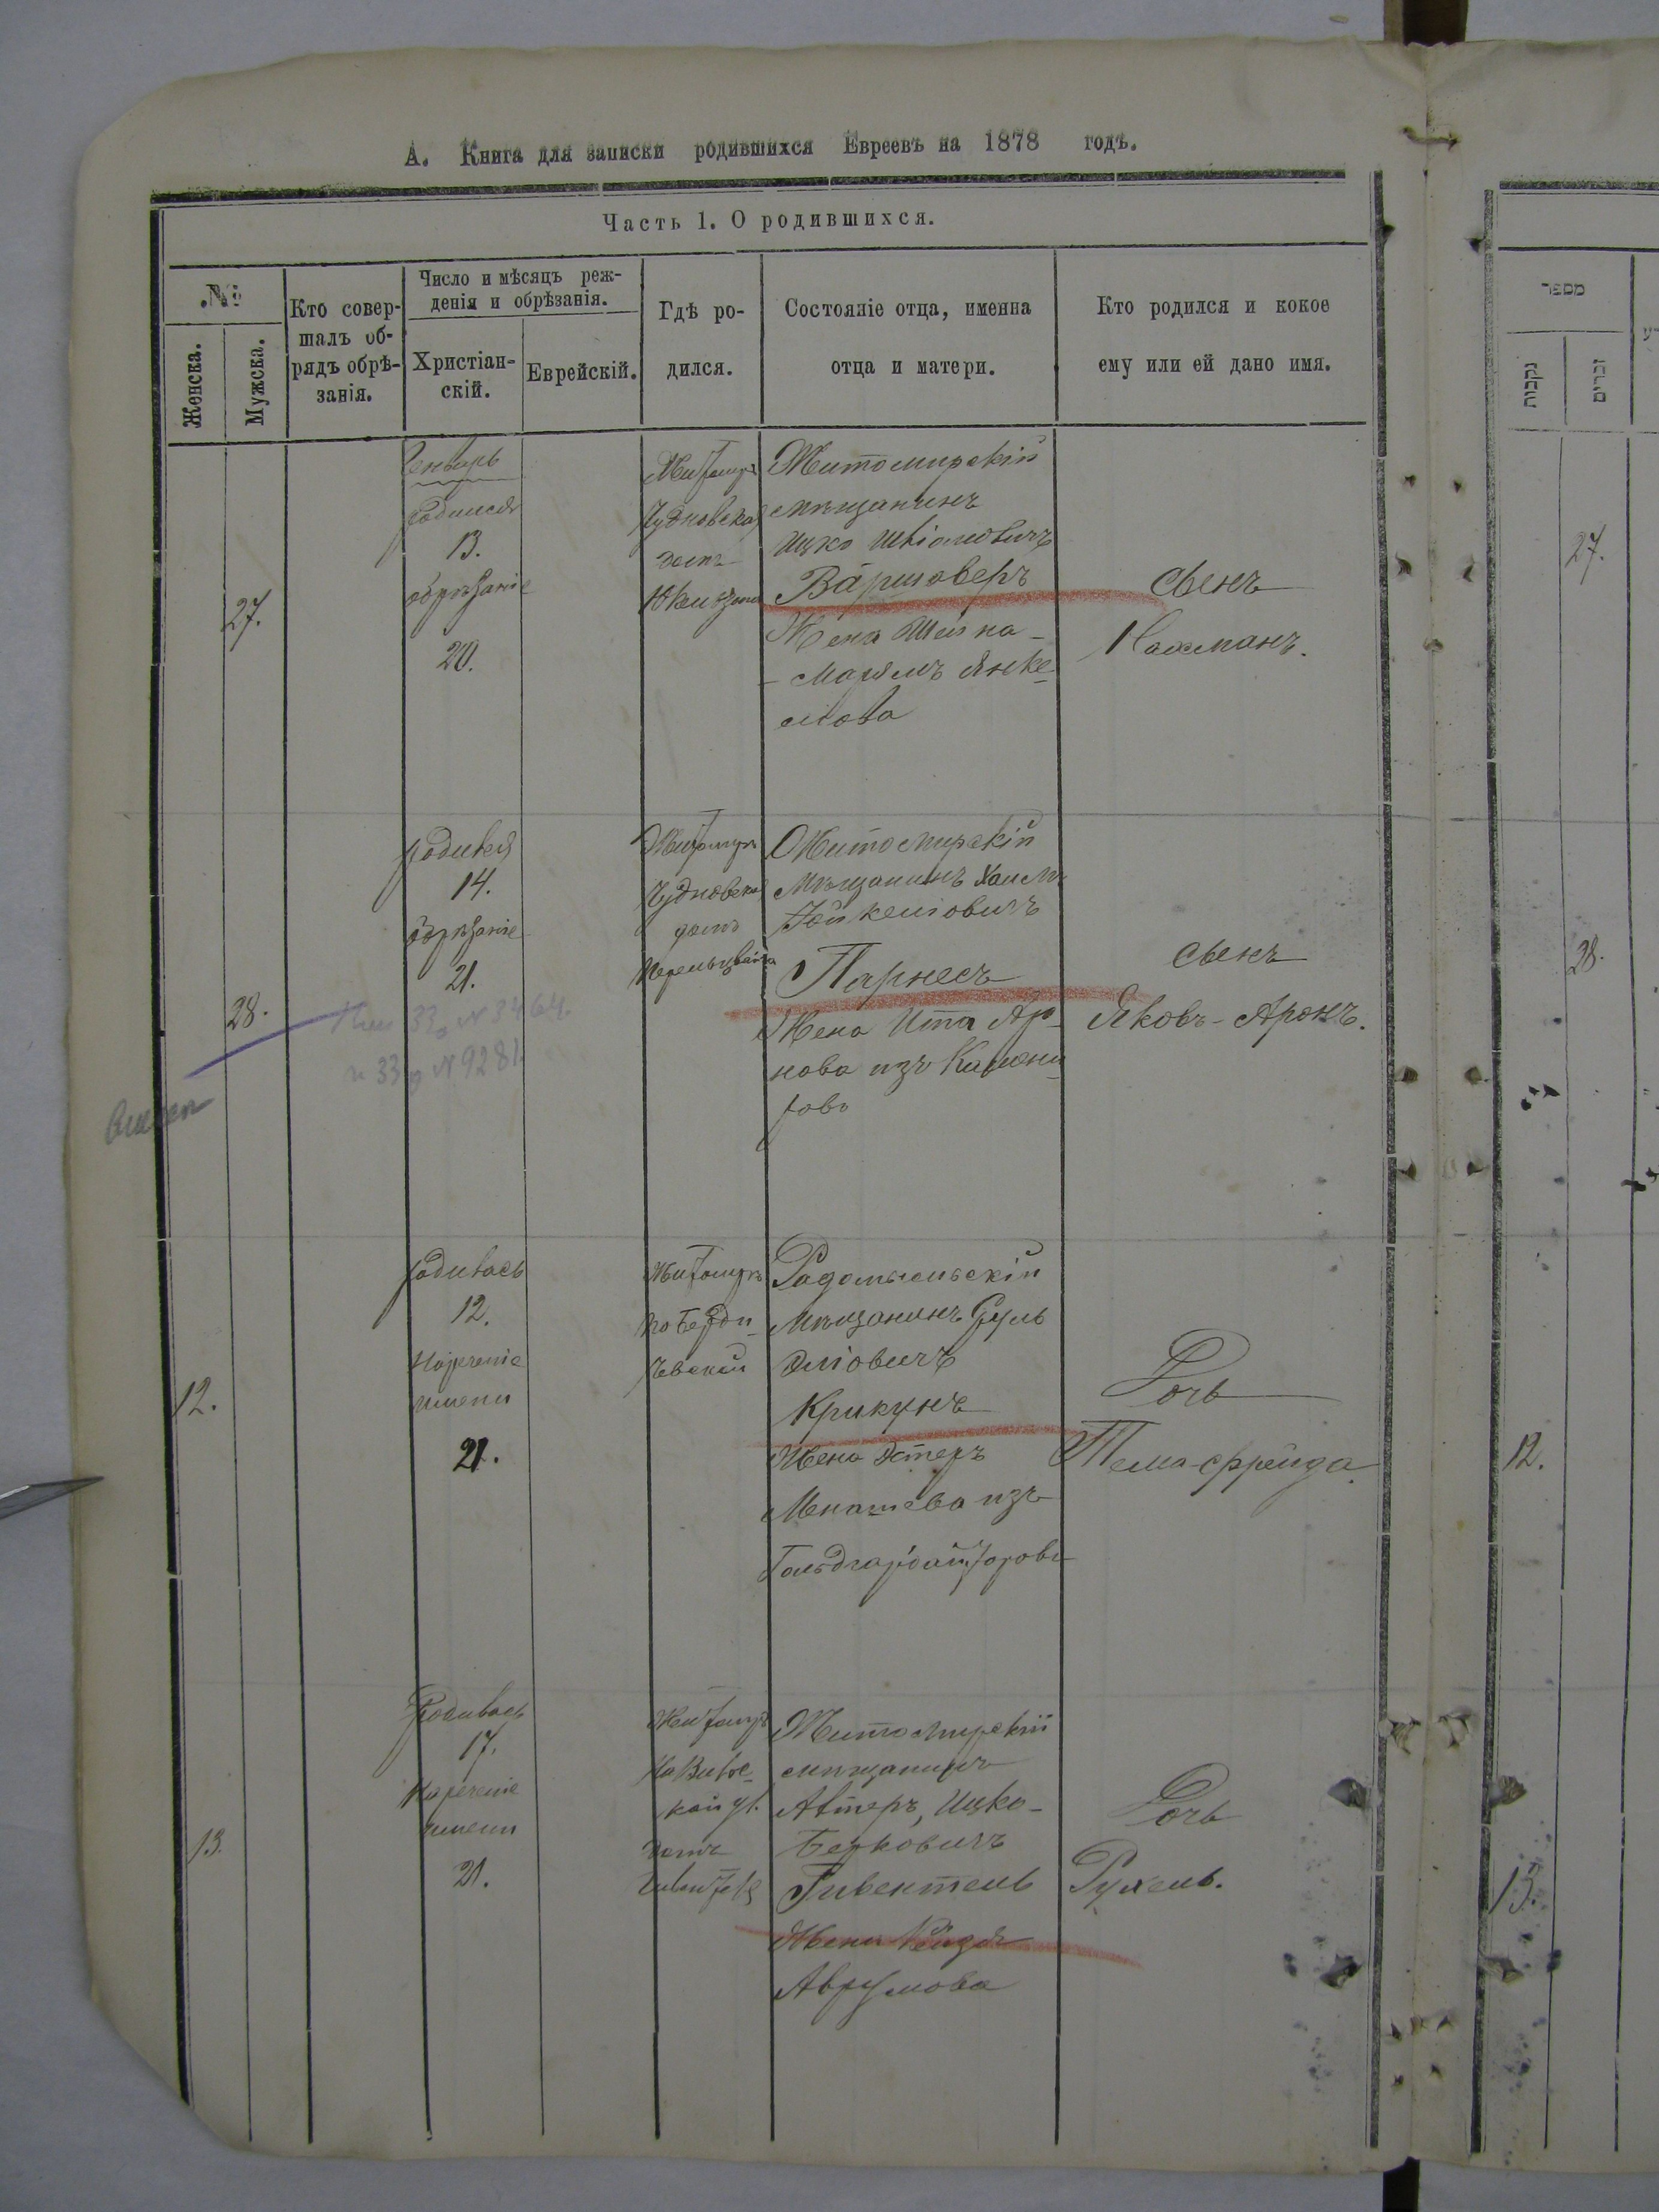 А. Книга для записки родившихся Евреевъ на 1878 годъ.
Часть 1. О родившихся.
№
Женска.
Мужска.
Кто совер-
шалъ об-
рядъ обрѣ-
занія.
Число и мѣсяцъ реж-
денія и обрѣзанія.
Христіан-
скій.
Еврейскій.
Гдѣ ро-
дился.
Состояніе отца, именна
отца и матери.
Кто родился и кокое
ему или ей дано имя.
27.
Генварь
родился
13.
обрѣзаніе
20.
Житомиръ
Чудновская
домъ
Житомирскій
мѣщанинъ
Ицко Шліомовичъ
Варшоверъ
Жена Шейна-
-Марямъ Янке-
ліова
сынъ
Нахманъ.
28.
родився
14.
обрѣзаніе
21.
Житомиръ
Чудновская
домъ
Перельцвейга
Житомирскій
Мѣщанинъ Хаимъ
Іойкеліовичъ
Парнесъ
Жена Ита Ар-
нова изъ
сынъ
Яковъ-Аронъ.
33 № 3464.
и 33 № 9281
12.
родилась
12.
Нареченіе
имени
21.
Житомиръ
по Берди-
чевской
Радомысльскій
Мѣщанинъ Сруль
Эліовичъ
Крикунъ
Жена Эстеръ
Менашева изъ
Дочь
Тема-Фрейда.
13.
Родилась
17.
Нареченіе
имени
21.
Житомиръ
На Вильс-
кой ул.
домъ
Житомирскій
мѣщанинъ
Алтеръ, Ицко-
Берковичъ
Гивентель
Жена Рейзя
Аврумова
Дочь
Рухель.
מספר
נקבות
זכרים
27.
28.
12.
13.